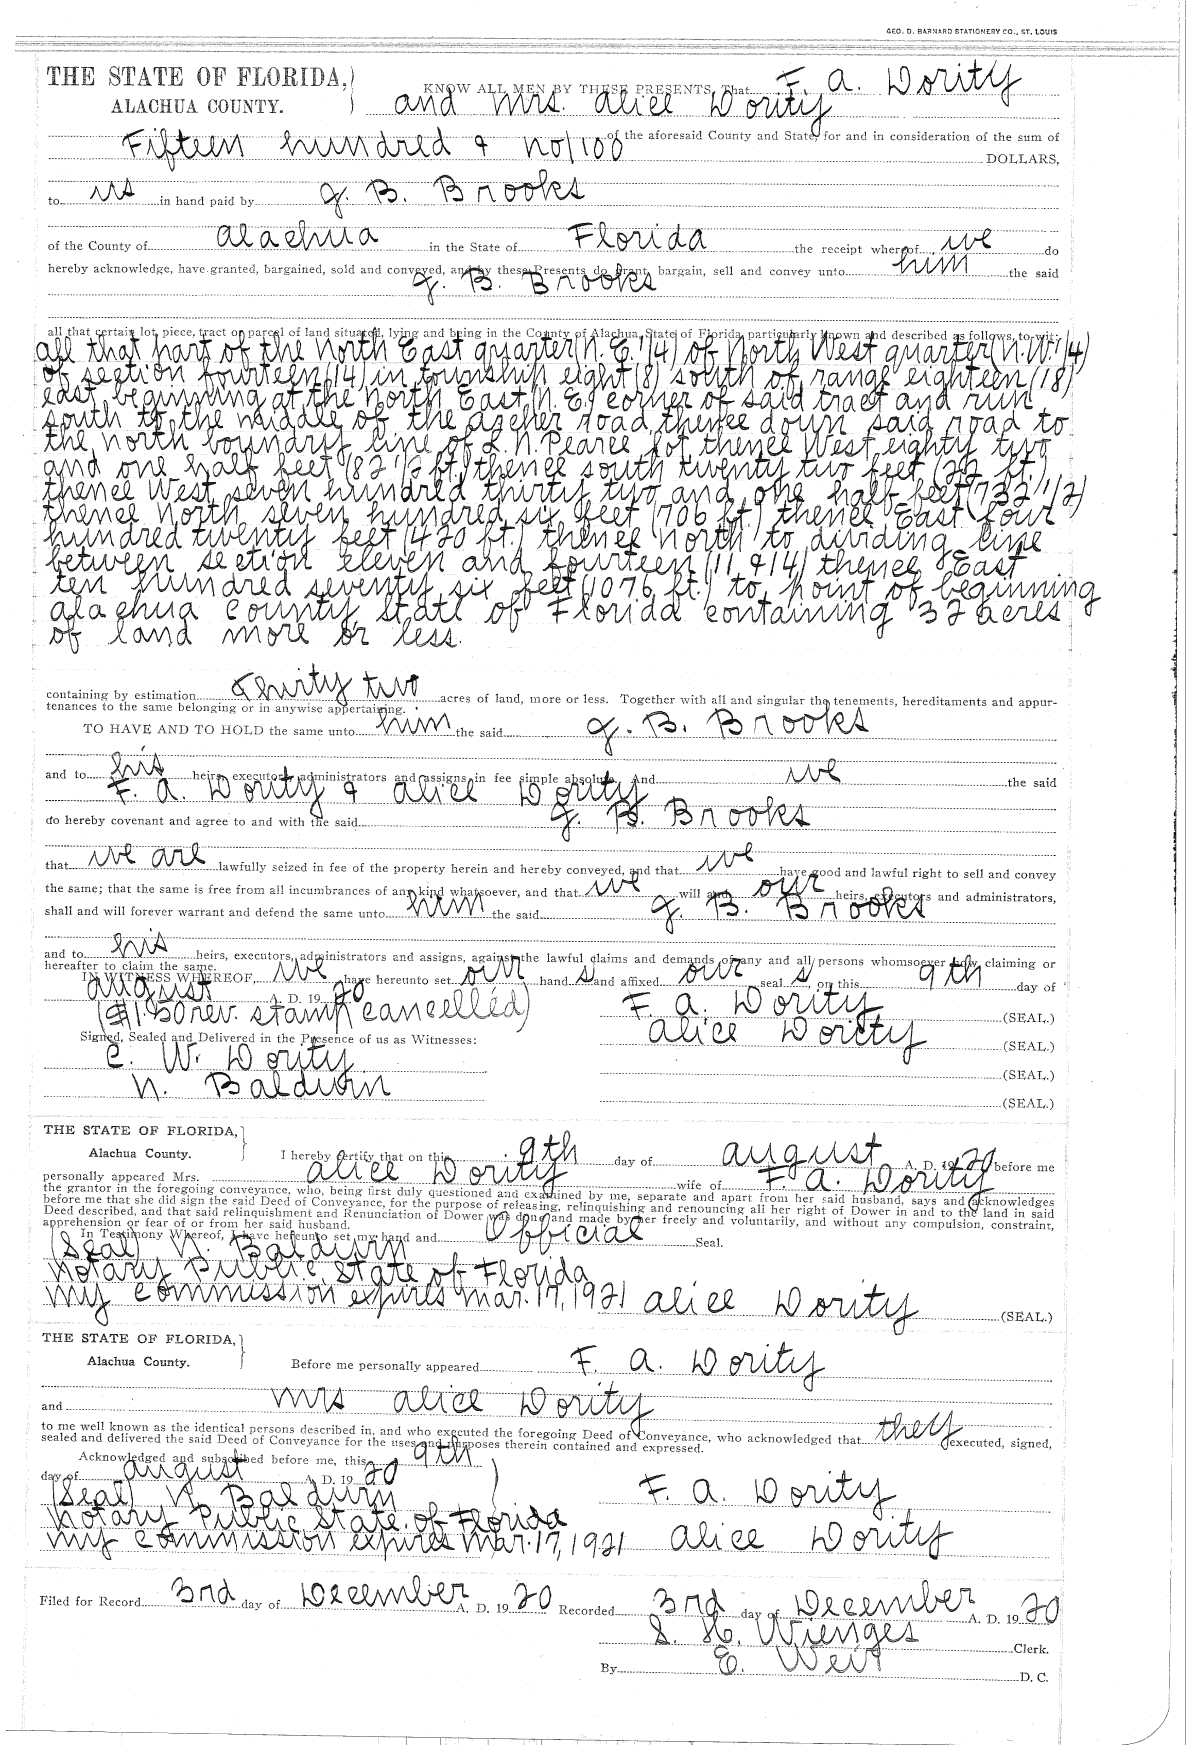 GEO. D. BARNARD STATIONERY CO., ST. LOUIS
THE STATE OF FLORIDA,
ALACHUA COUNTY.
KNOW ALL MEN BY THESE PRESENTS, That F. A. Dority
and Mrs. Alice Dority
of the aforesaid County and State, for and in consideration of the sum of
Fifteen hundred & no/100 DOLLARS,
to us in hand paid by J. B. Brooks
of the County of Alachua in the State of Florida the receipt whereof we do
hereby acknowledge, have granted, bargained, sold and conveyed, and by these Presents do grant, bargain, sell and convey unto him the said
J. B. Brooks
all that certain lot, piece, tract or parcel of land situated, lying and being in the County of Alachua, State of Florida, particularly known and described as follows, to-wit:
all that part of the North East quarter (N.E. 1/4) of North West quarter (N.W. 1/4)
of section fourteen (14) in township eight (8) south of range eighteen (18)
east, beginning at the North East (N.E.) corner of said tract and run
south to the middle of the Archer road, thence down said road to
the north boundry line of L. N. Pearce lot thence West eighty two
and one half feet (82 1/2 ft.) thence south twenty two feet (22 ft.)
thence West seven hundred thirty two and one half feet (732 1/2)
thence North seven hundred six feet (706 ft.) thence East four
hundred twenty feet (420 ft.) thence North to dividing line
between section eleven and fourteen (11 & 14) thence East
ten hundred seventy six feet (1076 ft.) to point of beginning
Alachua County, State of Florida containing 32 acres
of land more or less.
containing by estimation Thirty two acres of land, more or less. Together with all and singular the tenements, hereditaments and appur-
tenances to the same belonging or in anywise appertaining.
TO HAVE AND TO HOLD the same unto him the said J. B. Brooks
and to his heirs, executors, administrators and assigns, in fee simple absolute. And we the said
F. A. Dority & Alice Dority
do hereby covenant and agree to and with the said J. B. Brooks
that we are lawfully seized in fee of the property herein and hereby conveyed, and that we have good and lawful right to sell and convey
the same; that the same is free from all incumbrances of any kind whatsoever, and that we will and our heirs, executors and administrators,
shall and will forever warrant and defend the same unto him the said J. B. Brooks
and to his heirs, executors, administrators and assigns, against the lawful claims and demands of any and all persons whomsoever now claiming or
hereafter to claim the same.
IN WITNESS WHEREOF, we have hereunto set our hand s and affixed our seal s on this 9th day of
August A. D. 19 20
($1.50 rev. stamp cancelled) F. A. Dority (SEAL.)
Signed, Sealed and Delivered in the Presence of us as Witnesses: Alice Dority (SEAL.)
C. W. Dority (SEAL.)
N. Baldwin (SEAL.)
THE STATE OF FLORIDA,
Alachua County.
I hereby certify that on this 9th day of August A. D. 19 20 before me
personally appeared Mrs. Alice Dority wife of F. A. Dority
the grantor in the foregoing conveyance, who, being first duly questioned and examined by me, separate and apart from her said husband, says and acknowledges
before me that she did sign the said Deed of Conveyance, for the purpose of releasing, relinquishing and renouncing all her right of Dower in and to the land in said
Deed described, and that said relinquishment and Renunciation of Dower was done and made by her freely and voluntarily, and without any compulsion, constraint,
apprehension or fear of or from her said husband.
In Testimony Whereof, I have hereunto set my hand and Official Seal.
(Seal) N. Baldwin
Notary Public, State of Florida
My commission expires Mar. 17, 1921 Alice Dority (SEAL.)
THE STATE OF FLORIDA,
Alachua County.
Before me personally appeared F. A. Dority
and Mrs Alice Dority
to me well known as the identical persons described in, and who executed the foregoing Deed of Conveyance, who acknowledged that they executed, signed,
sealed and delivered the said Deed of Conveyance for the uses and purposes therein contained and expressed.
Acknowledged and subscribed before me, this 9th
day of August A. D. 19 20
(Seal) N. Baldwin F. A. Dority
Notary Public State of Florida
My commission expires Mar. 17, 1921 Alice Dority
Filed for Record 3rd day of December A. D. 19 20 Recorded 3rd day of December A. D. 19 20
S. H. Wienges Clerk.
By E. Weir D. C.